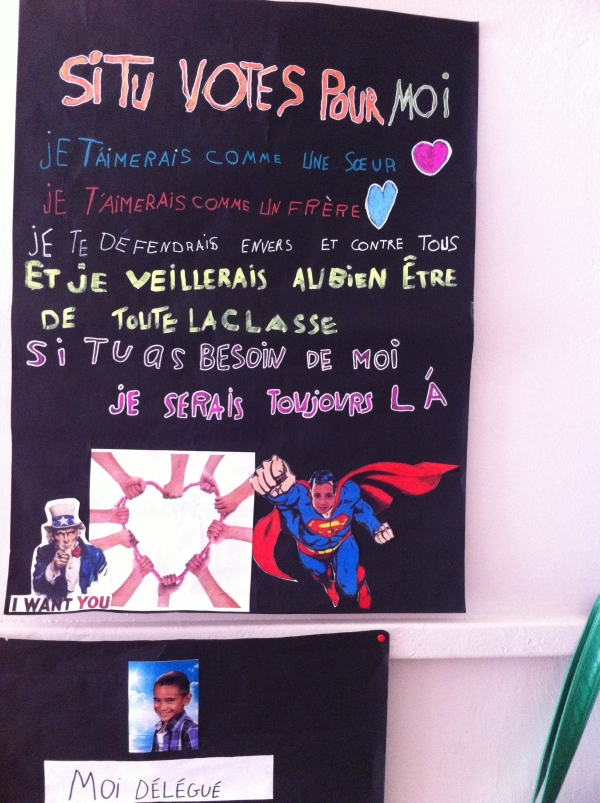 Si TU VOTES POUR MOi
JE T'AiMERAiS COMME UNE SŒUR
JE T'AiMERAiS COMME UN FRÈRE
JE TE DÉFENDRAiS ENVERS ET CONTRE TOUS
ET JE VEiLLERAiS AU BiEN ÊTRE
DE TOUTE LA CLASSE
Si TU as BESOiN DE MOi
JE SERAiS TOUJOURS LÁ
I WANT YOU
MOi DÉLÉGUÉ